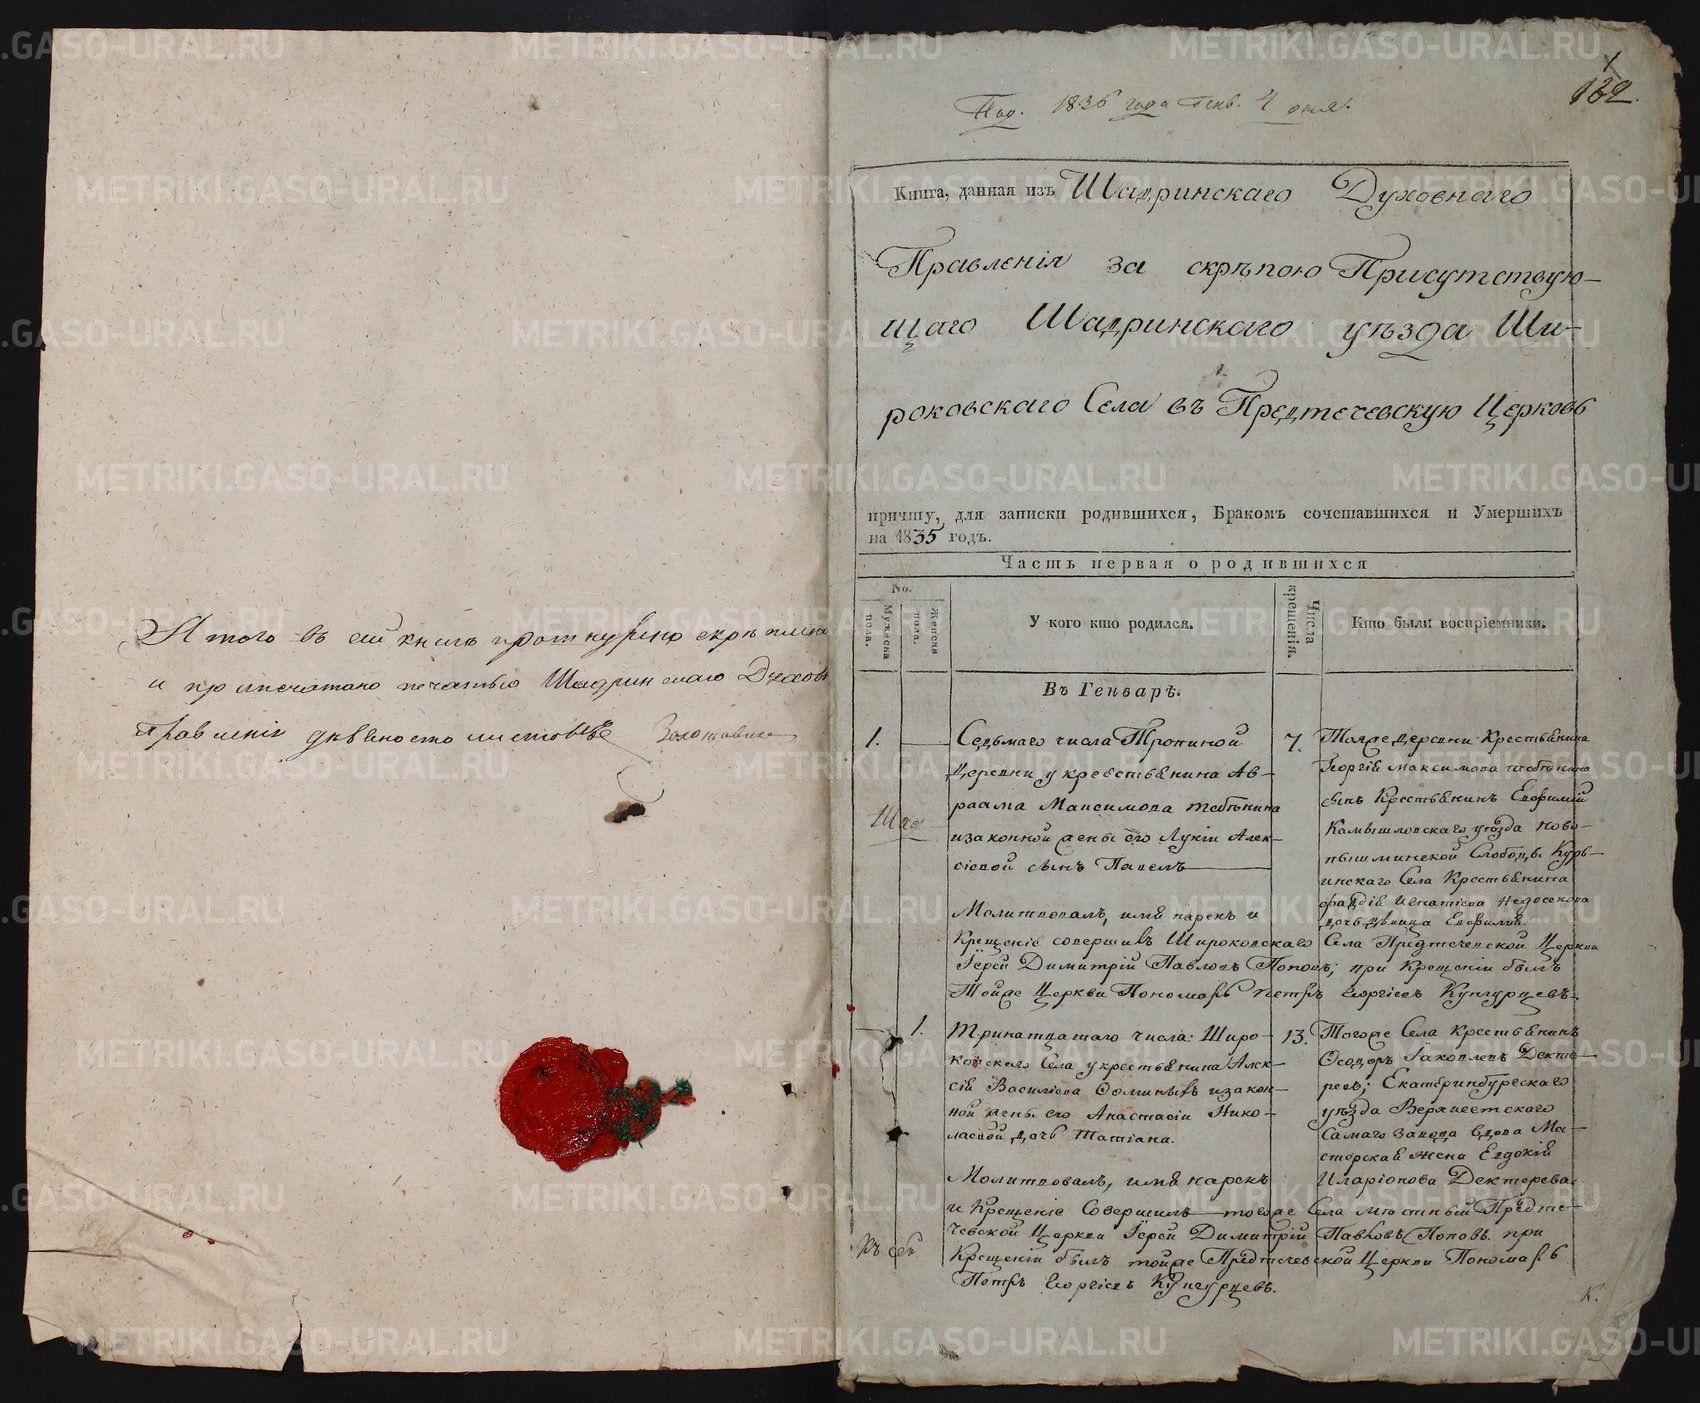 Итого въ сей книгѣ прошнурено скрѣплено
и припечатано печатью Шадринскаго Духов
Правленія девяносто листовъ
132
Под. 1836 года Генв. 4 дня.
Книга, данная изъ Шадринскаго Духовнаго
Правленія за скрѣпою Присутствую-
щаго Шадринскаго уѣзда Ши-
роковскаго Села въ Предтечевскую Церковь
причту, для записки родившихся, Бракомъ сочетавшихся и Умершихъ
на 1835 годъ.
Часть первая о родившихся
No.
Мужеска пола.
Женска пола.
У кого кто родился.
Числа крещенія.
Кто были воспріемники.
Въ Генварѣ.
1.
Седьмаго числа Тропиной
деревни у крестьянина Ав-
раама Максимова
изаконной жены его Лукіи Алек-
сіевой сынъ Павелъ
7.
Тояже деревни Крестьянина
Георгія Максимова
сынъ Крестьянинъ Евфимій
Камышловскаго уѣзда Ново-
пышминской Слободы Курь-
инскаго Села Крестьянина
Игнатіева
дочь дѣвица Евфимія.
Молитвовалъ, имя нарекъ и
Крещеніе совершилъ Широковскаго Села Предтечевской Церкви
Іерей Димитрій Павловъ Поповъ; при Крещеніи былъ
Тойже Церкви Пономарь Петръ Георгіевъ Кунгурцевъ.
1.
Тринатцатаго числа: Широ-
ковскаго Села у крестьянина Алек-
сія Василіева Фоминыхъ изакон-
ной жены его Анастасіи Нико-
лаевой дочь Татіана.
13.
Тогоже Села Крестьянинъ
Ѳеодоръ Іаковлевъ Дехте-
ревъ; Екатеринбургскаго
уѣзда Верхисетскаго
Самаго завода вдова Ма-
стерская жена Евдокія
Иларіонова Дехтерева.
Молитвовалъ, имя нарекъ
и Крещеніе Совершилъ тогоже Села мѣстный Предте-
чевской Церкви Іерей Димитрій Павловъ Поповъ при
Крещеніи былъ тойже Предтечевской Церкви Пономарь
Петръ Георгіевъ Кунгурцевъ.
К.
METRIKI.GASO-URAL.RU